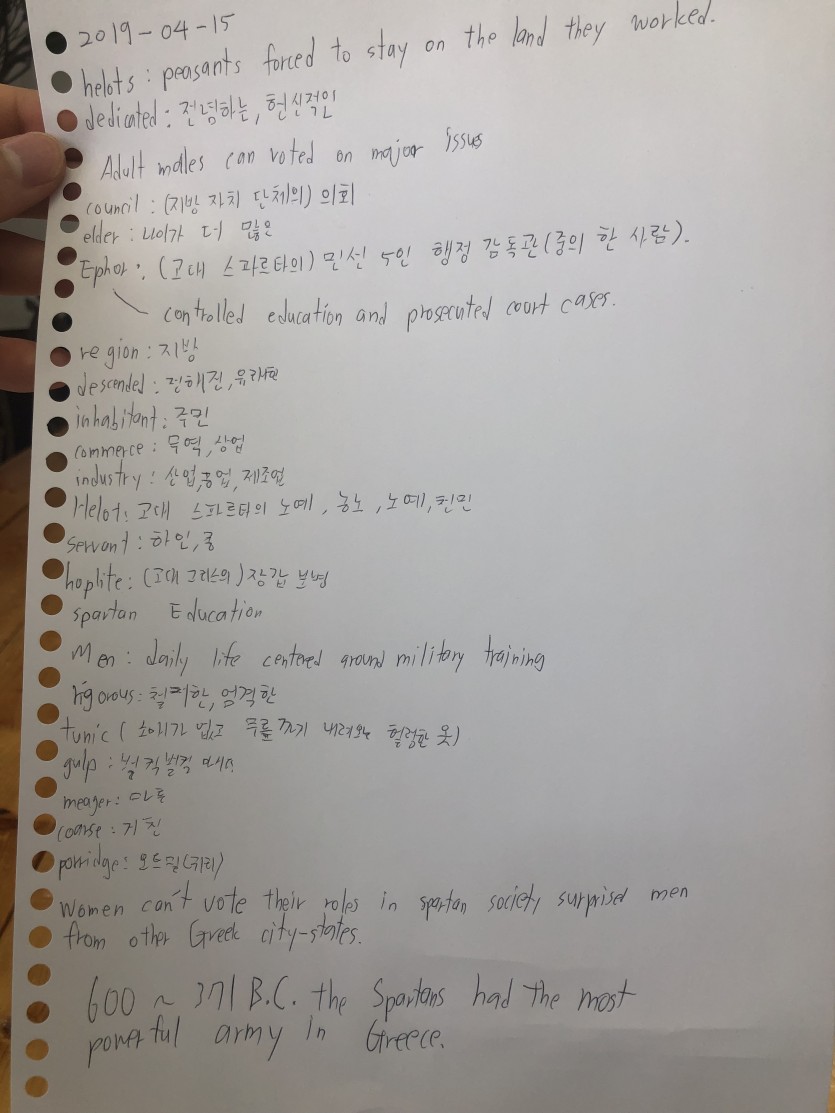 2019-04-15
helots : peasants forced to stay on the land they worked.
dedicated : 전념하는, 헌신적인
Adult males can voted on major issues
council : (지방 자치 단체의) 의회
elder : 나이가 더 많은
Ephor : (고대 스파르타의) 민선 5인 행정 감독관(중의 한 사람).
controlled education and prosecuted court cases.
region : 지방
descended : 전해진, 유래한
inhabitant : 주민
commerce : 무역, 상업
industry : 산업, 공업, 제조업
Helot : 고대 스파르타의 노예, 농노, 노예, 천민
servant : 하인, 종
hoplite : (고대 그리스의) 장갑 보병
spartan Education
Men : daily life centered around military training
rigorous : 철저한, 엄격한
tunic ( 소매가 없고 무릎까지 내려오는 헐렁한 옷)
gulp : 벌컥벌컥
meager : 마른
coarse : 거친
porridge : 오트밀(귀리)
Women can't vote their roles in spartan society surprised men
from other Greek city-states.
600 ~ 371 B.C. the Spartans had the most
powerful army in Greece.